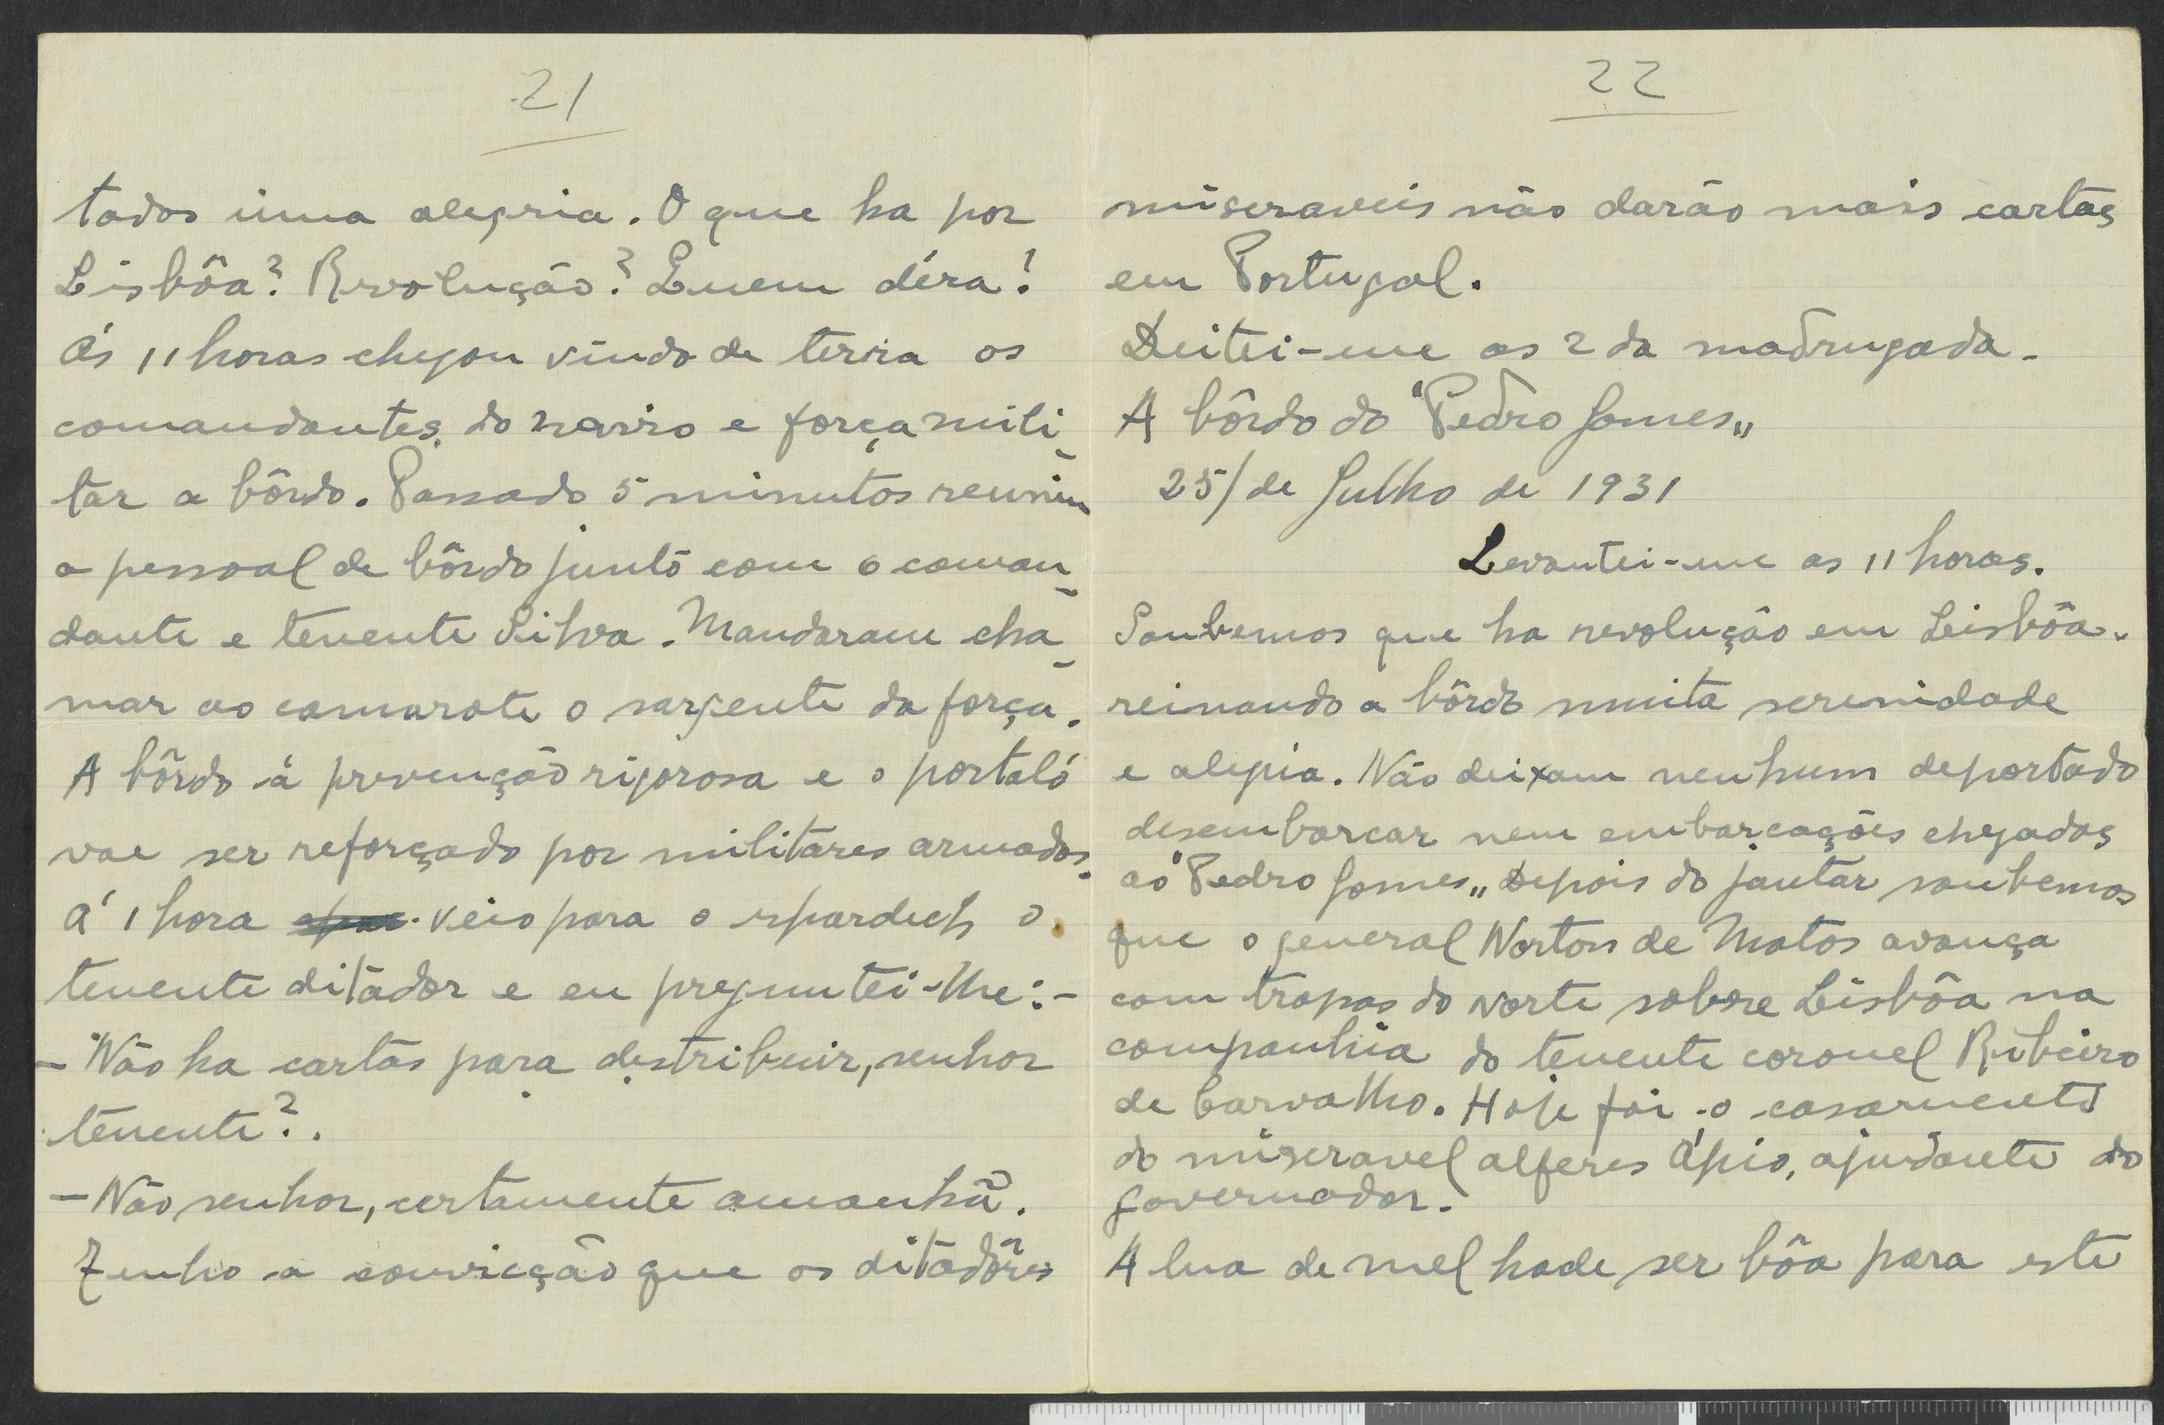 21
tados uma alegria. O que ha por
Lisbôa? Revolução? Quem déra!
Ás 11 horas chegou vindo de terra os
comandantes do navio e força mili-
tar a bôrdo. Passado 5 minutos reuniu
o pessoal de bôrdo junto com o coman-
dante e tenente Silva. Mandaram cha-
mar ao camarote o sargente da força.
A bôrdo á prevenção rigorosa e o portaló
vae ser reforçado por militares armados.
Á 1 hora veio para o spardech o
tenente ditador e eu preguntei-lhe:-
- Não ha cartas para destribuir, senhor
tenente?.
- Não senhor, certamente amanhã.
Tenho a convicção que os ditadôres
22
miseraveis não darão mais cartas
em Portugal.
Deitei-me as 2 da madrugada.
A bôrdo do "Pedro Gomes„
25/ de Julho de 1931
Levantei-me as 11 horas.
Soubemos que ha revolução em Lisbôa.
reinando a bôrdo muita serenidade
e alegria. Não deixam nenhum deportado
desembarcar nem embarcações chegadas
ao "Pedro Gomes„ Depois do jantar soubemos
que o general Norton de Matos avança
com tropas do norte sobre Lisbôa na
companhia do tenente coronel Ribeiro
de Carvalho. Hoje foi o casamento
do miseravel alferes Ápio, ajudante do
Governador.
A lua de mel hade ser bôa para este